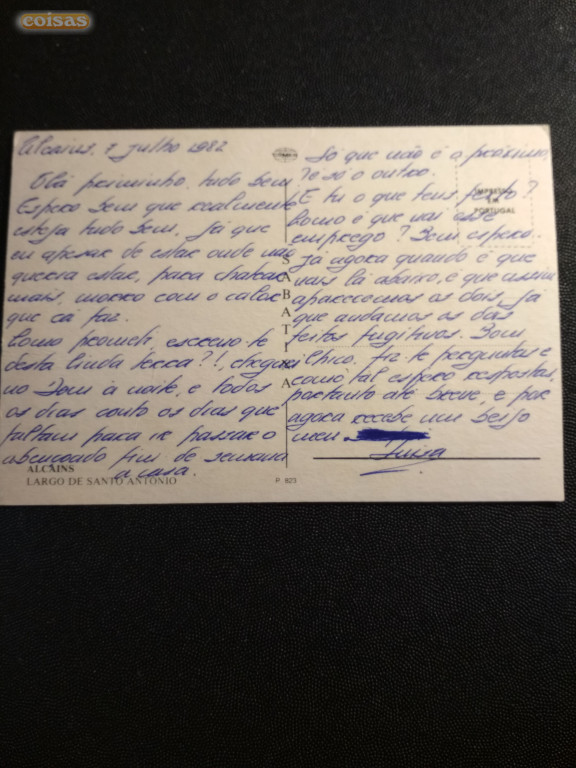 coisas
Alcains, 7 julho 1982
Olá priminho, tudo bem
Espero bem que realmente
esteja tudo bem, já que
eu apesar de estar onde não
queria estar, para chatear
mais, morro com o calor
que cá faz.
Como prometi, escrevo-te
desta linda terra?!, cheguei
no Dom à noite, e todos
os dias conto os dias que
faltam para ir passar o
abençoado fim de semana
a casa.
ALCAINS
LARGO DE SANTO ANTÓNIO
SABATINA
P 823
Só que não é o próximo,
é só o outro.
E tu o que tens feito?
Como é que vai esse
emprego? Bem espero.
Já agora quando é que
vais lá abaixo, é que assim
aparecemos os dois, já
que andamos os dois
feitos fugitivos. Bom
Chico, fiz-te perguntas e
como tal espero respostas,
portanto até breve, e por
agora recebe um beijo
meu
Luisa
IMPRESSO
EM
PORTUGAL